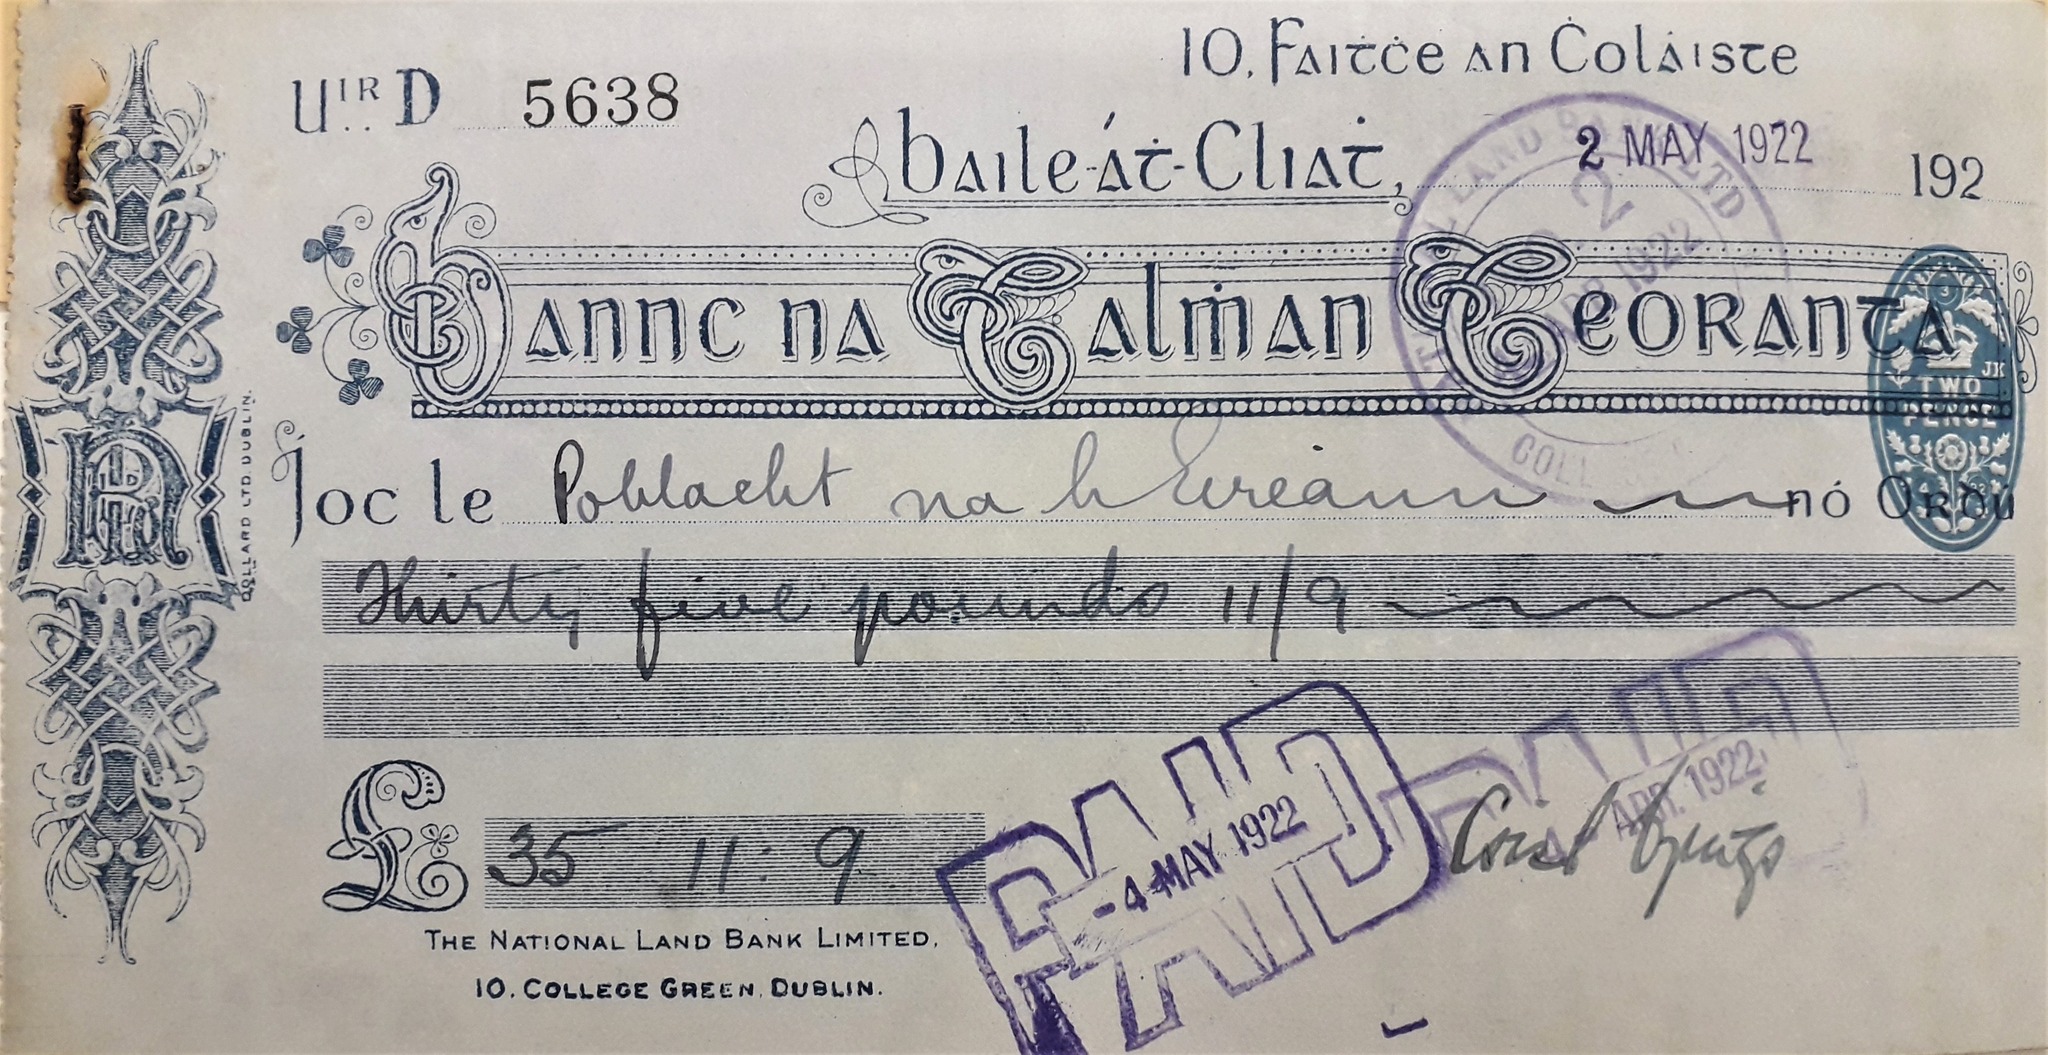 10, Faitċe an Ċoláiste
Uir D 5638
Baile-áṫ-Cliaṫ, 2 MAY 1922 192
Bannc na Talṁan Teoranta
JK
TWO
PENCE
Íoc le Poblacht na h Eireann nó Ordú
Thirty five pounds 11/9
£ 35 11: 9
PAID
-4 MAY 1922
PAID
APR. 1922
THE NATIONAL LAND BANK LIMITED,
10, COLLEGE GREEN, DUBLIN.
DOLLARD LTD. DUBLIN.